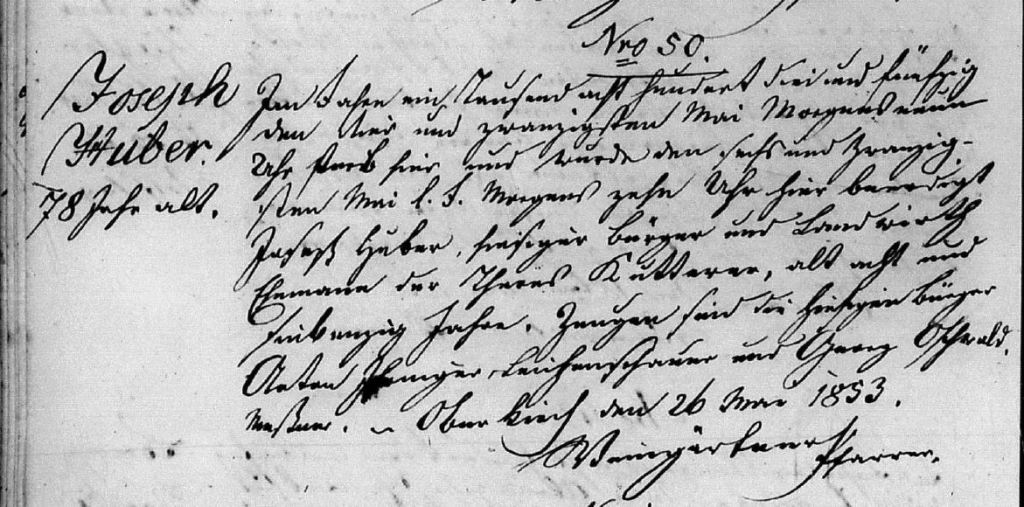 Nro 50.
Joseph
Huber.
78 Jahr alt.
Im Jahre ein Tausend acht hundert drei und fünfzig
den vier und zwanzigsten Mai Morgens neun
Uhr starb hier und wurde den sechs und zwanzig-
sten Mai l. J. Morgens zehn Uhr hier beerdigt
Joseph Huber, hiesiger Bürger und Landwirth
Ehemann der Theres Kutterer, alt acht und
siebenzig Jahre. Zeugen sind die hiesigen Bürger
Anton Leichenschauer und Georg Oschwald,
Meßner. – Oberkirch den 26 Mai 1853.
Weingärtner
Pfarrer.